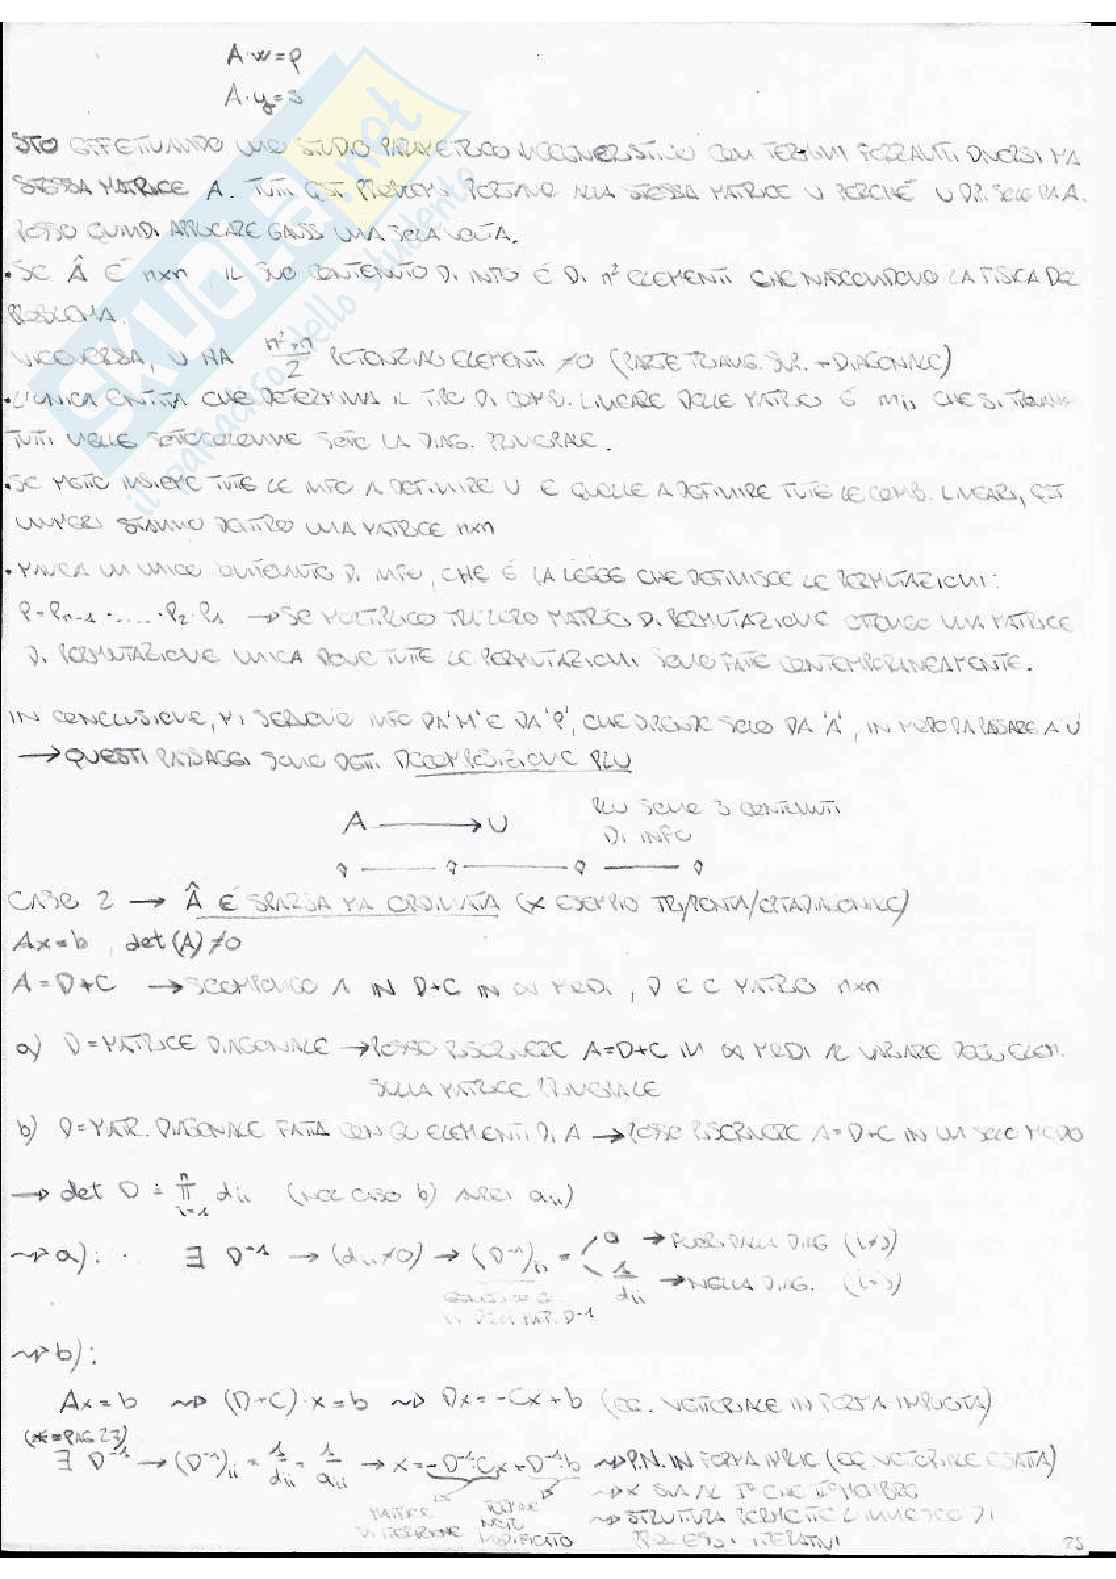 A·w=p
A·y=s
STO EFFETTUANDO UNO STUDIO PARAMETRICO INGEGNERISTICO CON TERMINI FORZANTI DIVERSI MA
STESSA MATRICE A. TUTTI QST PROBLEMI PORTANO ALLA STESSA MATRICE U PERCHÉ U DIP. SOLO DA A.
POSSO QUINDI APPLICARE GAUSS UNA SOLA VOLTA.
• SE Â È nxn, IL SUO CONTENUTO DI INFO È DI n² ELEMENTI CHE NASCONDONO LA FISICA DEL
PROBLEMA.
VICEVERSA, U HA (n²+n)/2 POTENZIALI ELEMENTI ≠0 (PARTE TRIANG. SUP. + DIAGONALE)
• L'UNICA ENTITÀ CHE DETERMINA IL TIPO DI COMB. LINEARE DELLE MATRICI È mij CHE SI TROVANO
TUTTI NELLE SOTTOCOLONNE SOTTO LA DIAG. PRINCIPALE.
• SE METTO INSIEME TUTTE LE INFO A DEFINIRE U E QUELLE A DEFINIRE TUTTE LE COMB. LINEARI, QST
NUMERI STANNO DENTRO UNA MATRICE nxn
• MANCA UN UNICO CONTENUTO DI INFO, CHE È LA LEGGE CHE DEFINISCE LE PERMUTAZIONI:
P=Pn-1·.....·P2·P1 → SE MOLTIPLICO TRA LORO MATRICI DI PERMUTAZIONE OTTENGO UNA MATRICE
DI PERMUTAZIONE UNICA DOVE TUTTE LE PERMUTAZIONI SONO FATTE CONTEMPORANEAMENTE.
IN CONCLUSIONE, MI SERVONO INFO DA 'M' E DA 'P', CHE DIPENDE SOLO DA 'A', IN MODO DA PASSARE A U
→ QUESTI PASSAGGI SONO DETTI DECOMPOSIZIONE PLU
A → U PLU SONO 3 CONTENUTI
DI INFO
CASO 2 → Â È SPARSA MA ORDINATA (X ESEMPIO TRI/PENTA/EPTADIAGONALE)
Ax=b, det(A)≠0
A=D+C → SCOMPONGO A IN D+C IN ∞ MODI, D E C MATRICI nxn
a) D=MATRICE DIAGONALE → POSSO RISCRIVERE A=D+C IN ∞ MODI AL VARIARE DEGLI ELEM.
SULLA MATRICE PRINCIPALE
b) D=MATR. DIAGONALE FATTA CON GLI ELEMENTI DI A → POSSO RISCRIVERE A=D+C IN UN SOLO MODO
→ det D = ∏ i=1 n dii (NEL CASO b) AVREI aii)
⇝ a): ∃ D⁻¹ → (dii≠0) → (D⁻¹)ij = 0 → FUORI DALLA DIAG. (i≠j)
1/dii → NELLA DIAG. (i=j)
DELLA MAT. D⁻¹
⇝ b):
Ax=b ⇝ (D+C)·x=b ⇝ Dx=-Cx+b (EQ. VETTORIALE IN FORMA IMPLICITA)
(*=PAG.27)
∃ D⁻¹ → (D⁻¹)ii = 1/dii = 1/aii → x=-D⁻¹Cx+D⁻¹b ⇝ P.N. IN FORMA IMPLIC (EQ VETTORIALE ESATTA)
⇝ X SIA AL I° CHE II° MEMBRO
MATRICE DI ITERAZIONE TERMINE NOTO MODIFICATO ⇝ STRUTTURA PERMETTE L'INNESCO DI
PROCESSI ITERATIVI
SKUOLA.net
il paradiso dello studente